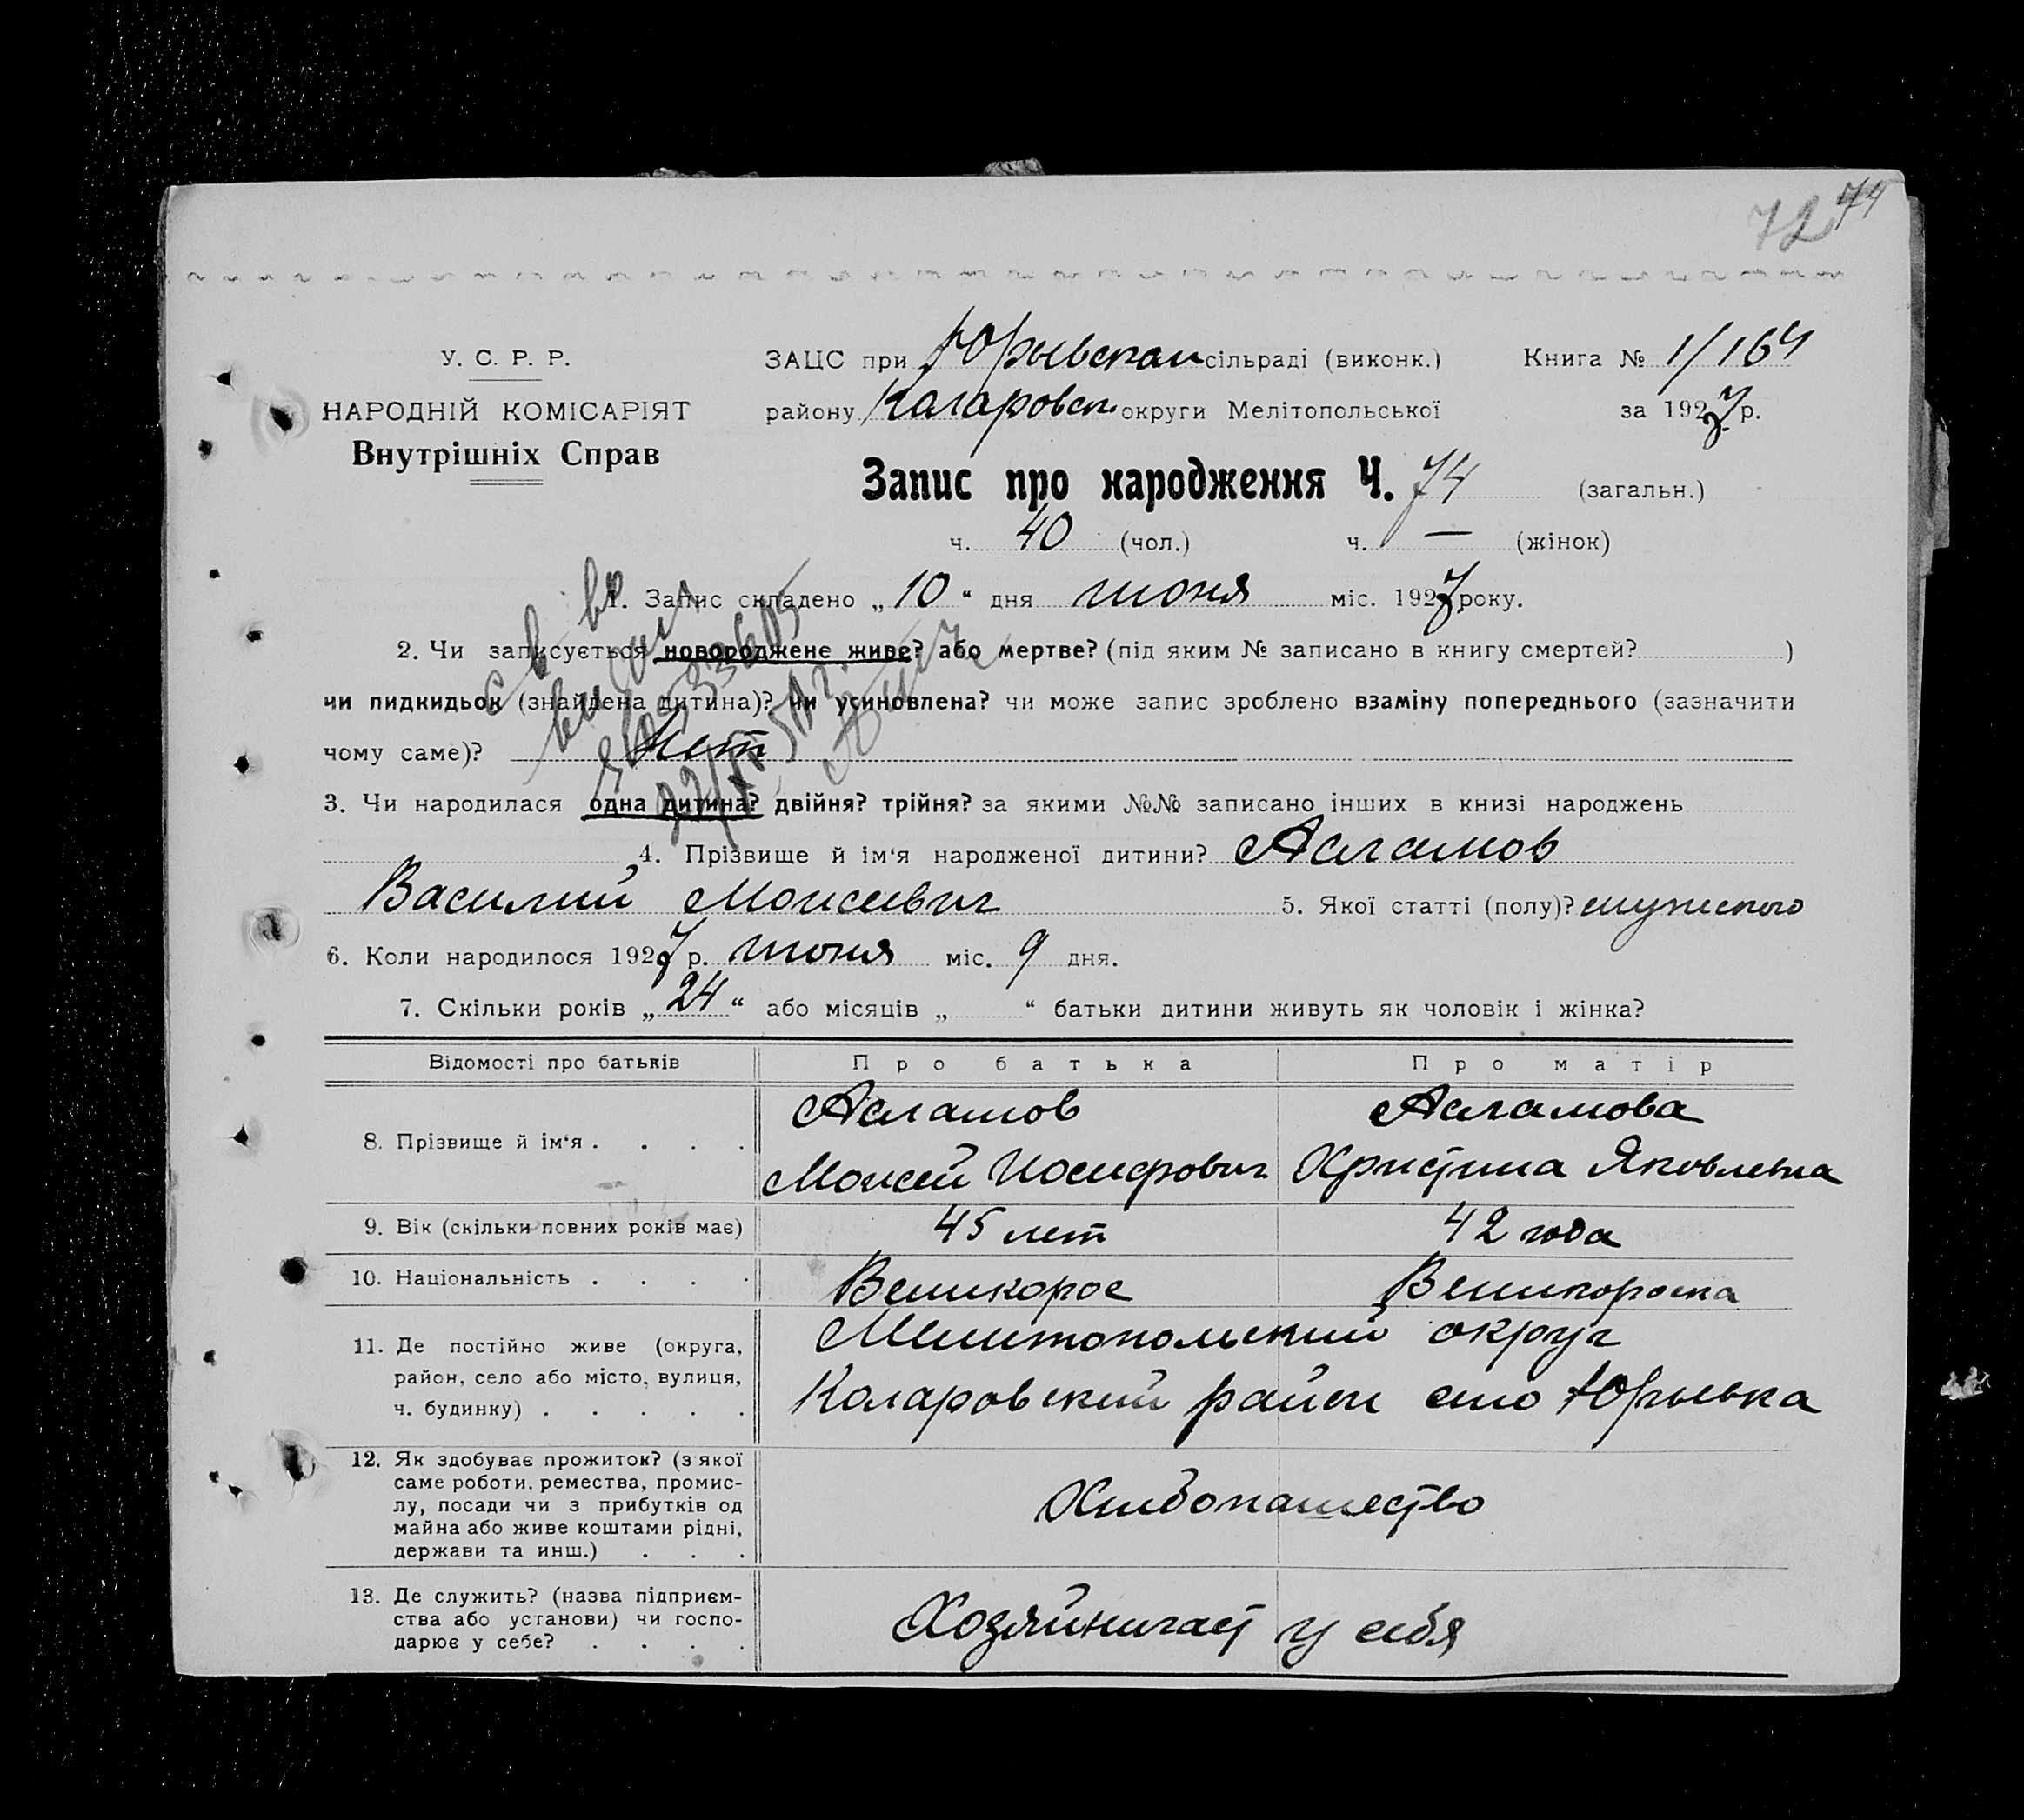 72 74
У. С. Р. Р.
НАРОДНІЙ КОМІСАРІЯТ
Внутрішніх Справ
ЗАЦС при Юрьевском сільраді (виконк.)
Книга № 1/164
району Коларовск. округи Мелітопольської
за 1927 р.
Запис про народження Ч. 74 (загальн.)
ч. 40 (чол.) ч. — (жінок)
1. Запис складено „ 10 “ дня июня міс. 1927 року.
2. Чи записується новороджене живе? або мертве? (під яким № записано в книгу смертей? )
чи пидкидьок (знайдена дитина)? чи усиновлена? чи може запис зроблено взаміну попереднього (зазначити
чому саме)? Нет
3. Чи народилася одна дитина? двійня? трійня? за якими №№ записано інших в книзі народжень
4. Прізвище й ім‘я народженої дитини? Асламов
Василий Моисеевич 5. Якої статті (полу)? мужеского
6. Коли народилося 1927 р. июня міс. 9 дня.
7. Скільки років „ 24 “ або місяців „ “ батьки дитини живуть як чоловік і жінка?
Відомості про батьків Про батька Про матір
8. Прізвище й ім‘я . . . .
Асламов Асламова
Моисей Иосифович Христина Яковлевна
9. Вік (скільки повних років має) 45 лет 42 года
10. Національність . . . . Великорос Великороска
11. Де постійно живе (округа,
район, село або місто, вулиця,
ч. будинку) . . . . .
Мелитопольский округ
Коларовский район село Юрьевка
12. Як здобуває прожиток? (з якої
саме роботи, ремества, промис-
лу, посади чи з прибутків од
майна або живе коштами рідні,
держави та инш.) . . .
Хлебопашество
13. Де служить? (назва підприєм-
ства або установи) чи госпо-
дарює у себе? . . . .
Хозяйничает у себя